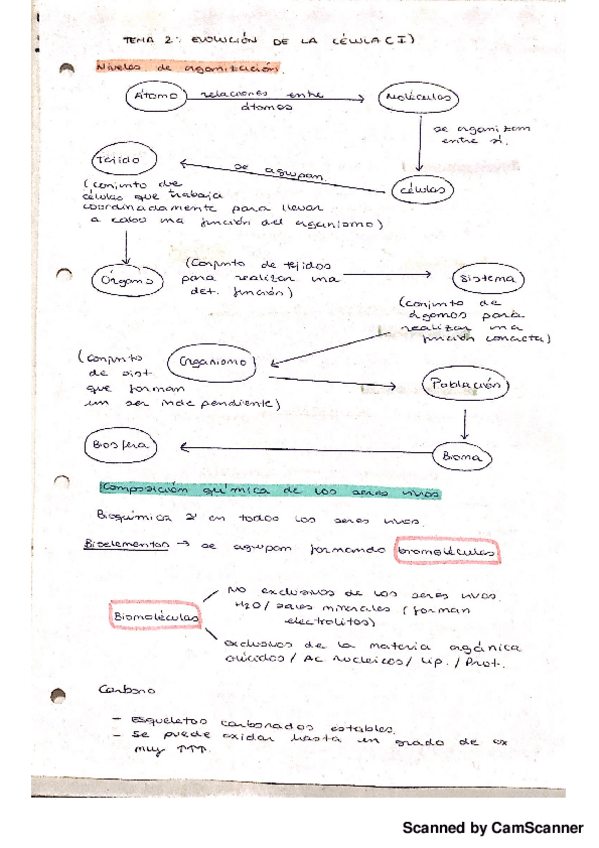 TEMA 2: EVOLUCIÓN DE LA CÉLULA (I)
Niveles de organización.
Átomo relaciones entre átomos Moléculas
se organizan
entre sí.
Tejido se agupan. células
(conjunto de
células que trabaja
coordinadamente para llevar
a cabo una función del organismo)
Órgano (Conjunto de tejidos
para realizar una
det. función)
Sistema
(conjunto de
órganos para
realizar una
función concreta)
(conjunto
de sist.
que forman
un ser independiente)
Organismo
Población
Biosfera Bioma
Composición química de los seres vivos
Bioquímica en todos los seres vivos.
Bioelementos → se agupan formando biomoléculas
Biomoléculas
No exclusivos de los seres vivos.
H2O / sales minerales (forman
electrolitos)
exclusivos de la materia orgánica
/ Ac nucleicos / Lip. / Prot.
Carbono
- Esqueletos carbonados estables.
- Se puede oxidar hasta un grado de ox
muy ↑↑↑.
Scanned by CamScanner